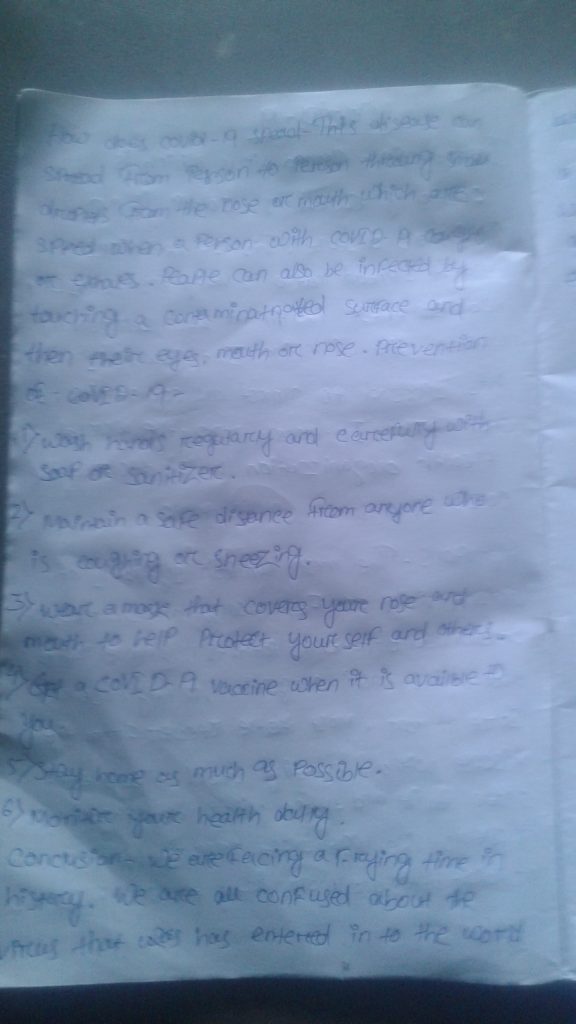 How does covid-19 spread - This disease can
spread from Person to Person through small
droplets from the nose or mouth which are
spread when a Person with COVID 19 coughs
or exhales. People can also be infected by
touching a contaminated surface and
then their eyes, mouth or nose. Prevention
of COVID-19-
1) wash hands regularly and carefully with
soap or sanitizer.
2) Maintain a safe disance from anyone who
is coughing or sneezing.
3) wear a mask that covers your nose and
mouth to help Protect yourself and others.
4) Get a COVID-19 vaccine when it is available to
you.
5) stay home as much as Possible.
6) Monitor your health daily.
Conclusion- We are facing a trying time in
history. We are all confused about the
virus that has entered in to the world